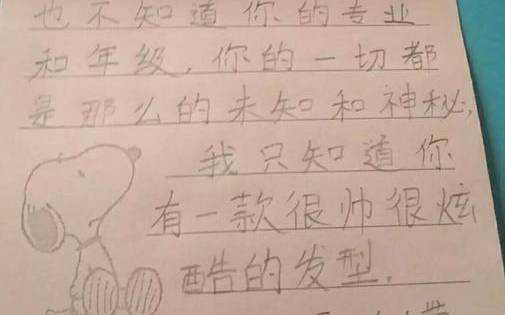 也不知道你的专业
和年级，你的一切都
是那么的未知和神秘，
我只知道你
有一款很帅很炫
酷的发型．